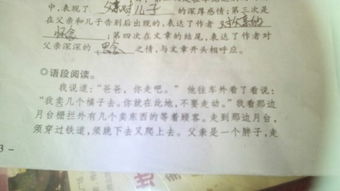 中,表现了 父亲对儿子 的深厚感情;第三次是
在父亲和儿子告别后出现的,表达了作者 对父亲的
怀念 ;第四次在文章的结尾,表达了作者对
父亲深深的 思念 之情,与文章开头相呼应。
◎语段阅读。
我说道:“爸爸,你走吧。” 他往车外看了看说:
“我卖几个橘子去。你就在此地,不要走动。”我看那边
月台栅拦外有几个卖东西的等着顾客。走到那边月台,
须穿过铁道,须跳下去又爬上去。父亲是一个胖子,走
3 -